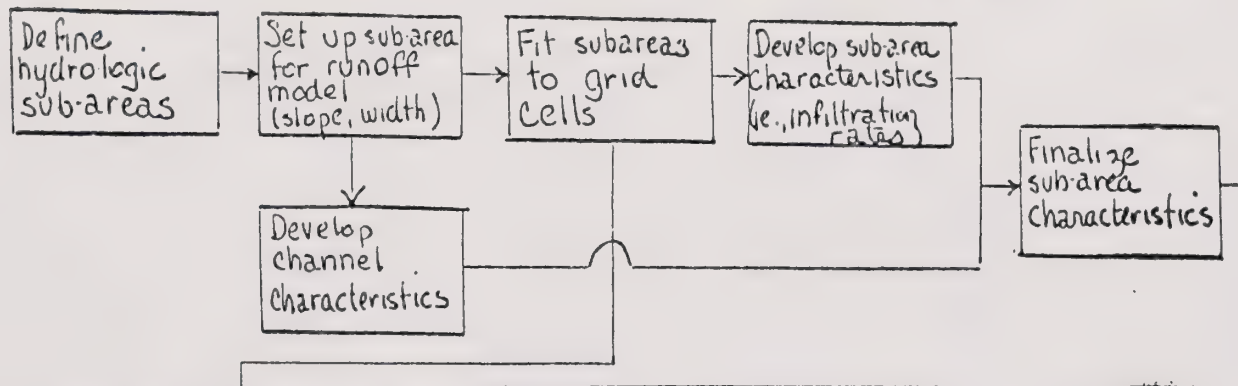 Define
hydrologic
sub-areas
Set up sub-area
for runoff
model
(slope, width)
Fit subareas
to grid
cells
Develop sub-area
characteristics
(ie., infiltration
rates)
Develop
channel
characteristics
Finalize
sub-area
characteristics